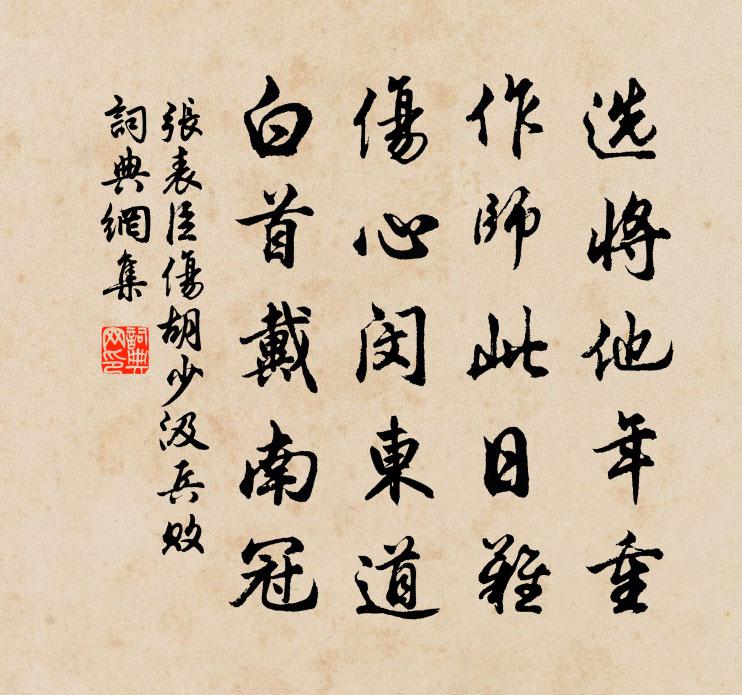 选将他年重
作師此日難
傷心閔東道
白首戴南冠
張表臣傷胡少汲兵敗
詞典網集
詞典网印